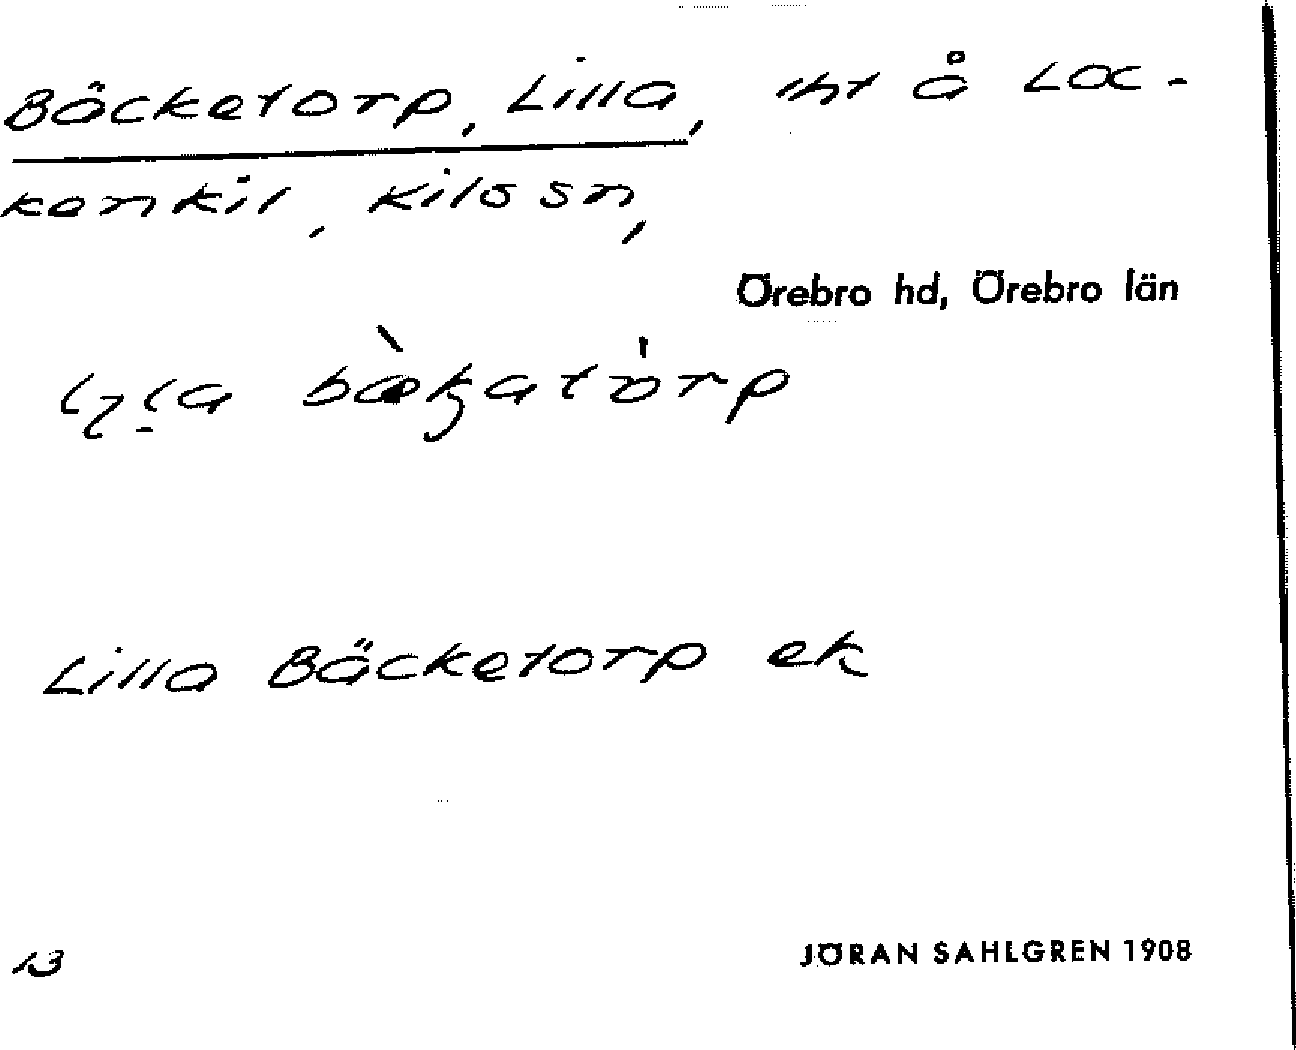 Bäcketorp, Lilla, lht å Loc-
kenkil, Kils sn,
Örebro hd, Örebro län
Lilla Bäcketorp ek
13
JÖRAN SAHLGREN 1908